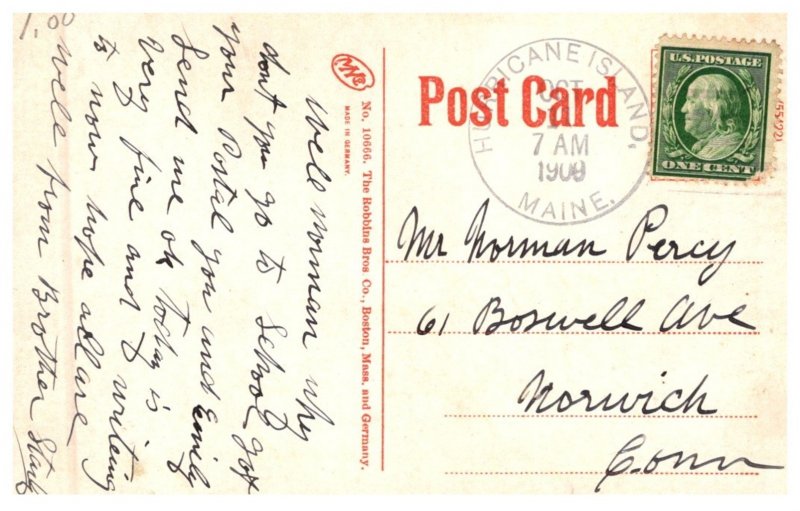 1.00
Well norman why
dont you go to School got
your Postal you and Emily
Send me ok today is
Very fine and I writeing
to now hope all are
well from Brother
MADE IN GERMANY.
No. 10666. The Robbins Bros. Co., Boston, Mass. and Germany.
Post Card
HURRICANE ISLAND,
OCT
7 AM
1909
MAINE.
U.S. POSTAGE
ONE CENT
Mr Norman Percy
61 Boswell Ave
Norwich
Conn